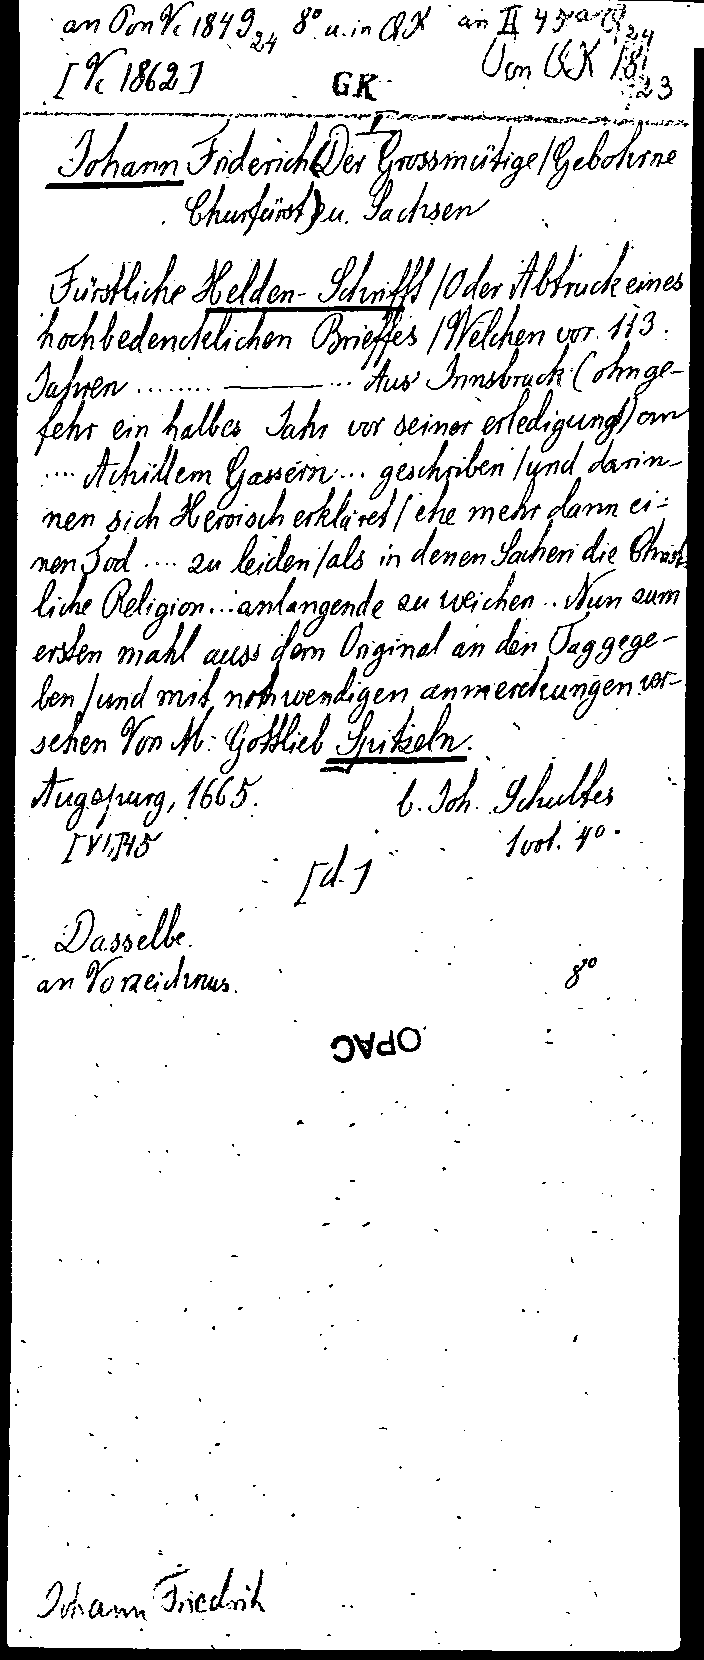 an Pon Vc 1849 24 8° u. in QK an II 45a
[Vc 1862] GK Von QK 18 23
I
Johann Friderich (Der Grossmütige / Gebohrne
Churfürst) zu. Sachsen
Fürstliche Helden-Schrifft / Oder Abtruck eines
hochbedencklichen Brieffes / Welchen vor 113.
Jahren ........ ——— ... Aus Innsbruck (ohnge-
fehr ein halbes Jahr vor seiner erledigung) an
.... Achillem Gassern ... geschriben / und darin-
nen sich Heroisch erkläret / ehe mehr dann ei-
nen Tod .... zu leiden / als in denen Sachen die Christ-
liche Religion ... anlangende zu weichen .. Nun zum
ersten mahl auss dem Original an den Tag gege-
ben / und mit nothwendigen anmerckungen ver-
sehen Von M. Gottlieb Spitzeln.
Augspurg, 1665. b. Joh. Schultes
1 vol. 4°.
[d.]
Dasselbe.
an Verzeichnus. 8°
OPAC
Johann Friedrich